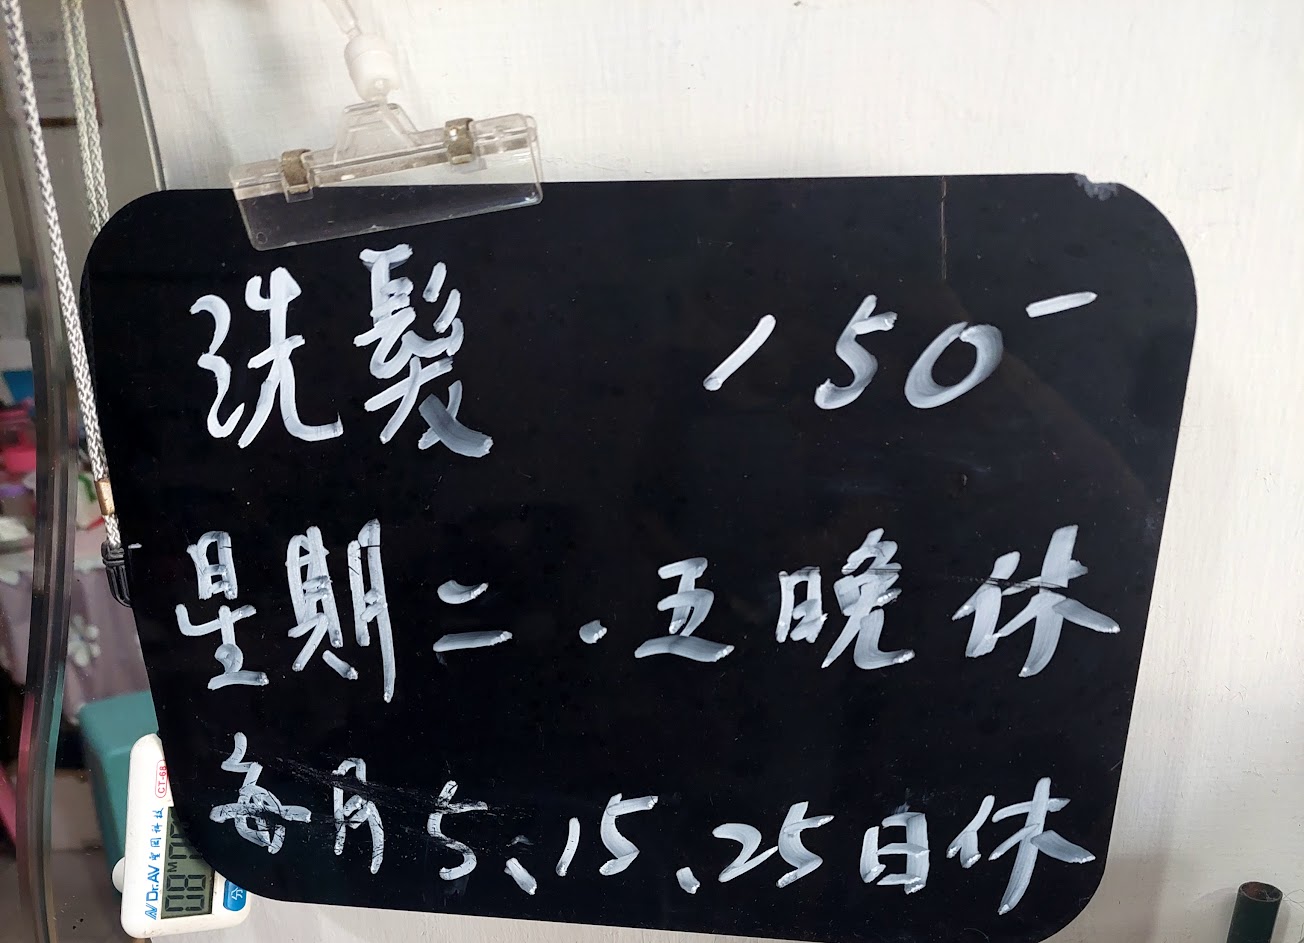 洗髮 150-
星期二.五晚休
每月5、15、25日休
CT-68
Dr.AV 聖岡科技
分